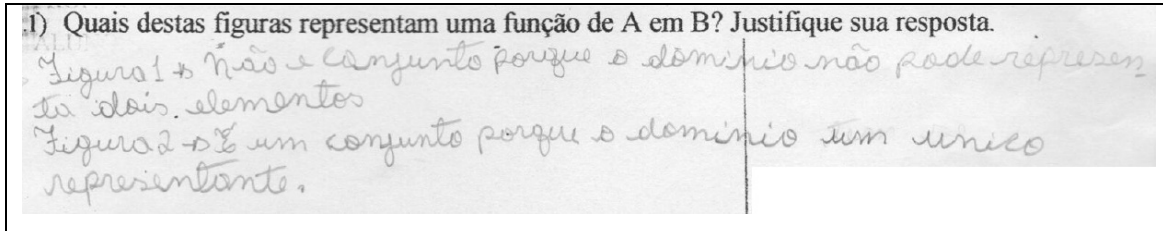 1) Quais destas figuras representam uma função de A em B? Justifique sua resposta.
Figura 1 → Não e conjunto porque o dominio não pode represen
ta dois elementos
Figura 2 → É um conjunto porque o dominio um unico
representante.